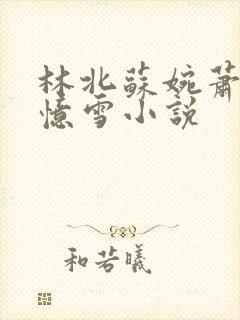 林北蘇婉蕭
憶雪小説
和若曦